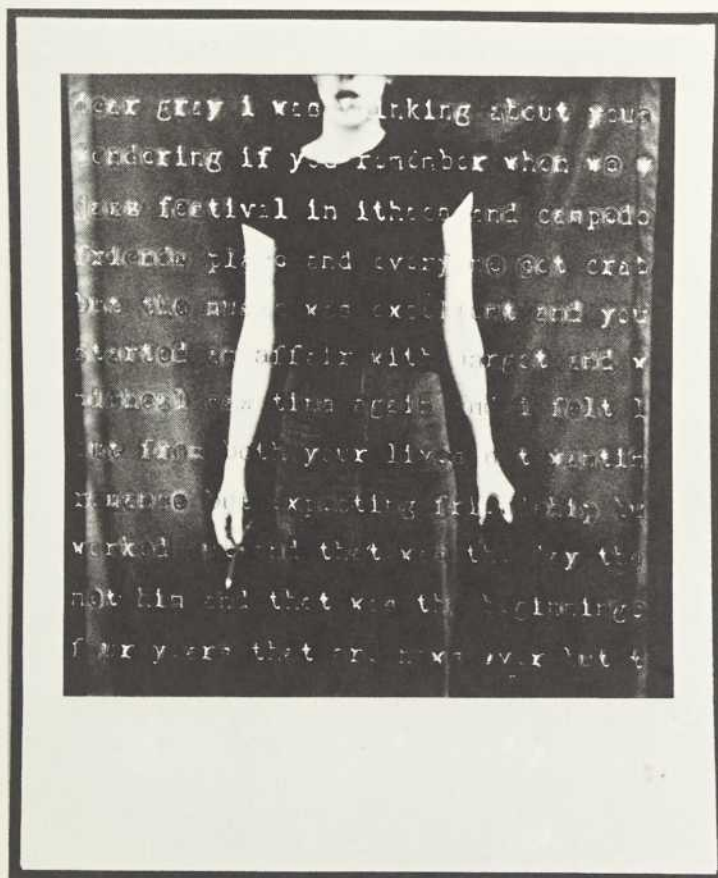 dear gray i was thinking about your
wondering if you remember when we w
jazz festival in ithaca and campedo
friends place and everyone got crab
but the music was excellent and you
started an affair with margot and w
michael saw tina again but i felt l
from both your lives not wantin
romance but expecting friendship be
worked and that was the day the
not him and that was the beginningo
four years that are now over but t